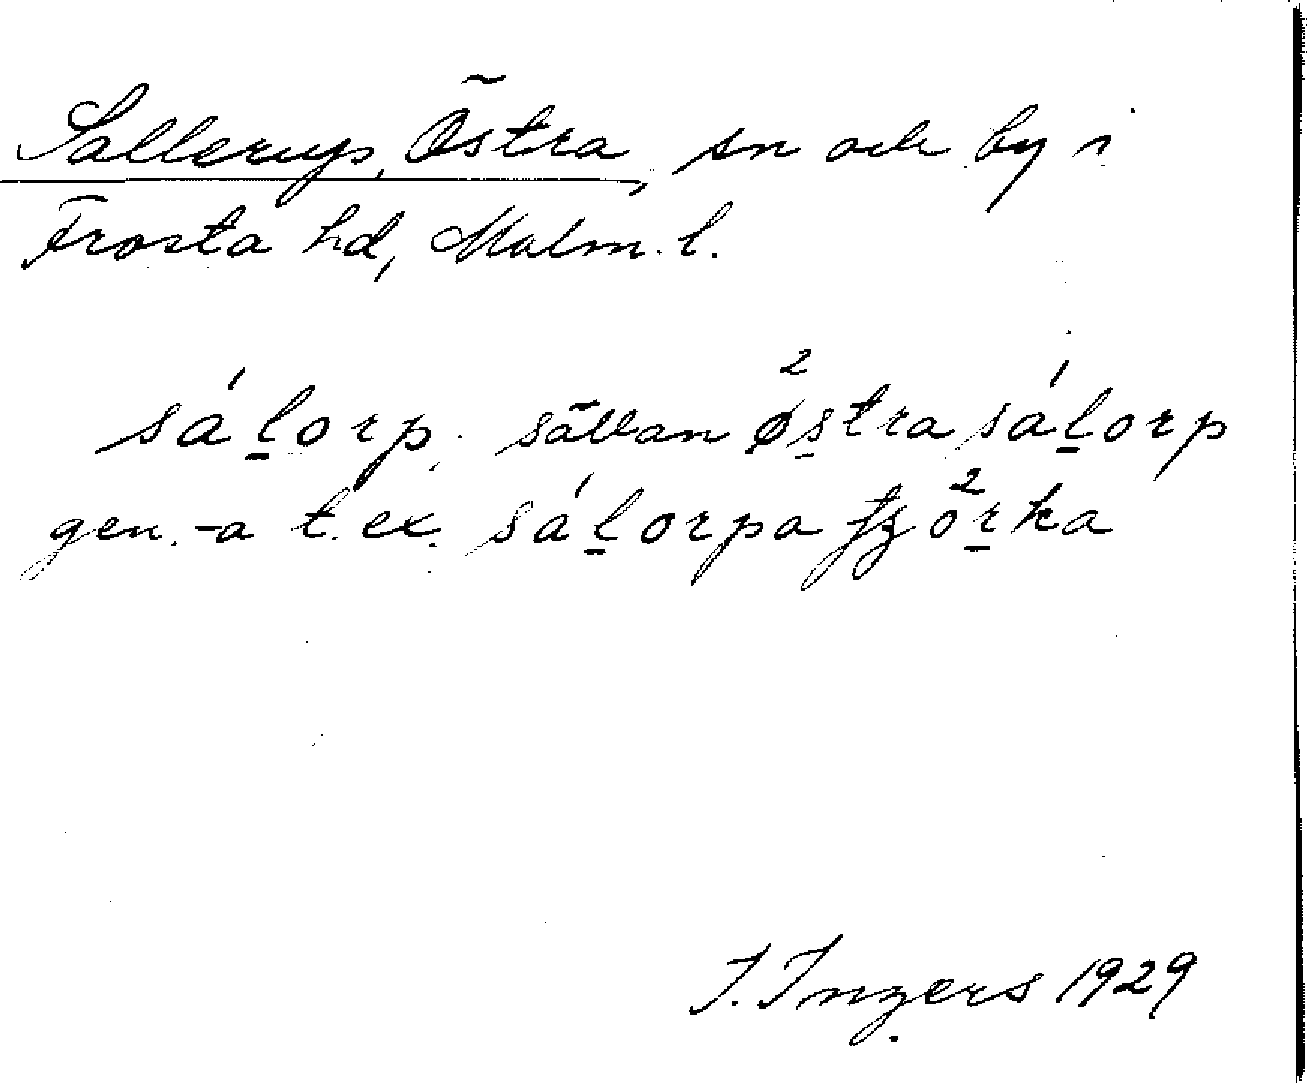 Sallerup, Östra, sn och by i
Frosta hd, Malm. l.
sál̲orp. sällan ø̂²s̲tra sál̲orp
gen. -a t. ex. sál̲orpa tʒö²r̲ka
I. Ingers 1929